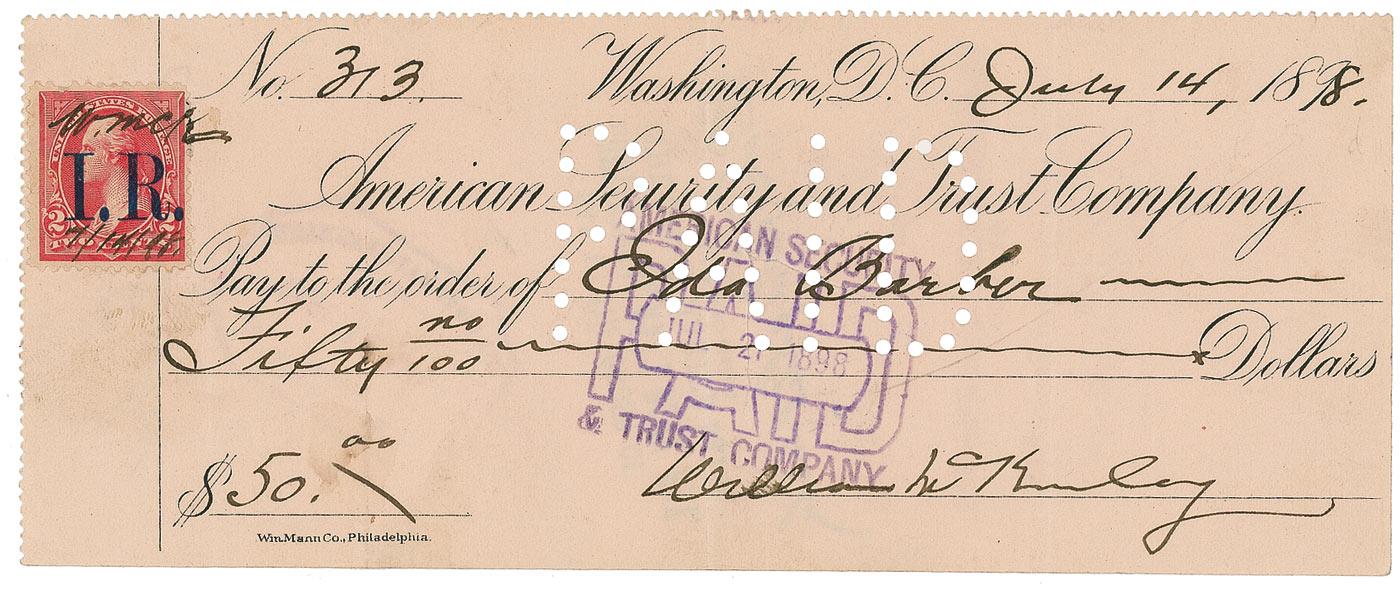 No. 313. Washington, D.C. July 14, 1898.
W. McK
UNITED STATES POSTAGE
I.R.
2 2
7/14/98.
American Security and Trust Company.
Pay to the order of Ida Barber
Fifty no/100 Dollars
AMERICAN SECURITY
PAID
JUL 21 1898
& TRUST COMPANY
PAID
$50.00
William McKinley
Wm. Mann Co., Philadelphia.